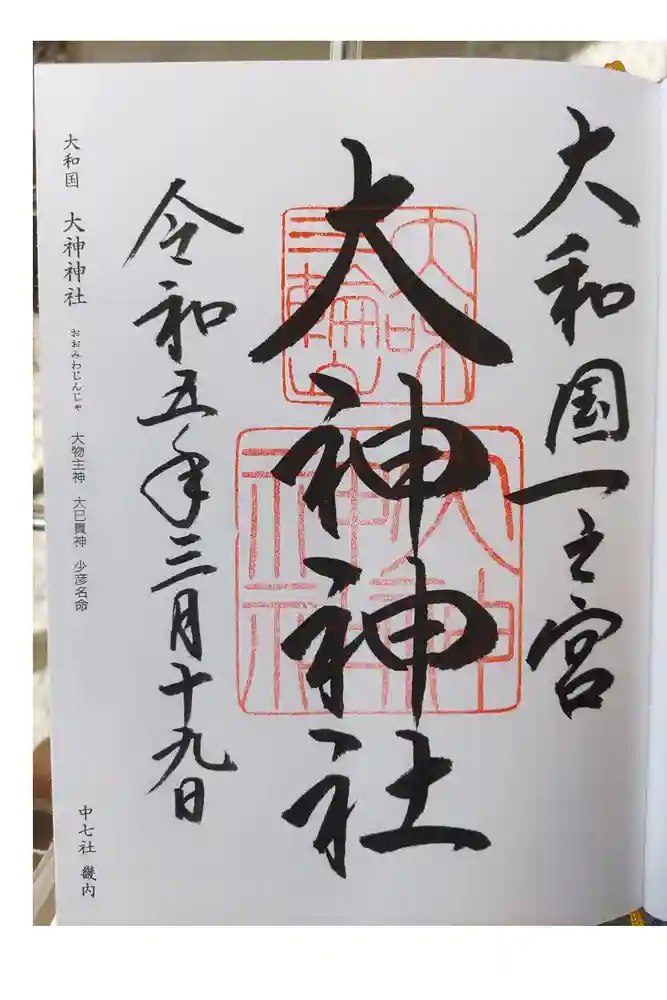 大和国一之宮
大神神社
令和五年三月十九日
大和国 大神神社 おおみわじんじゃ 大物主神 大巳貴神 少彦名命
中七社 畿内